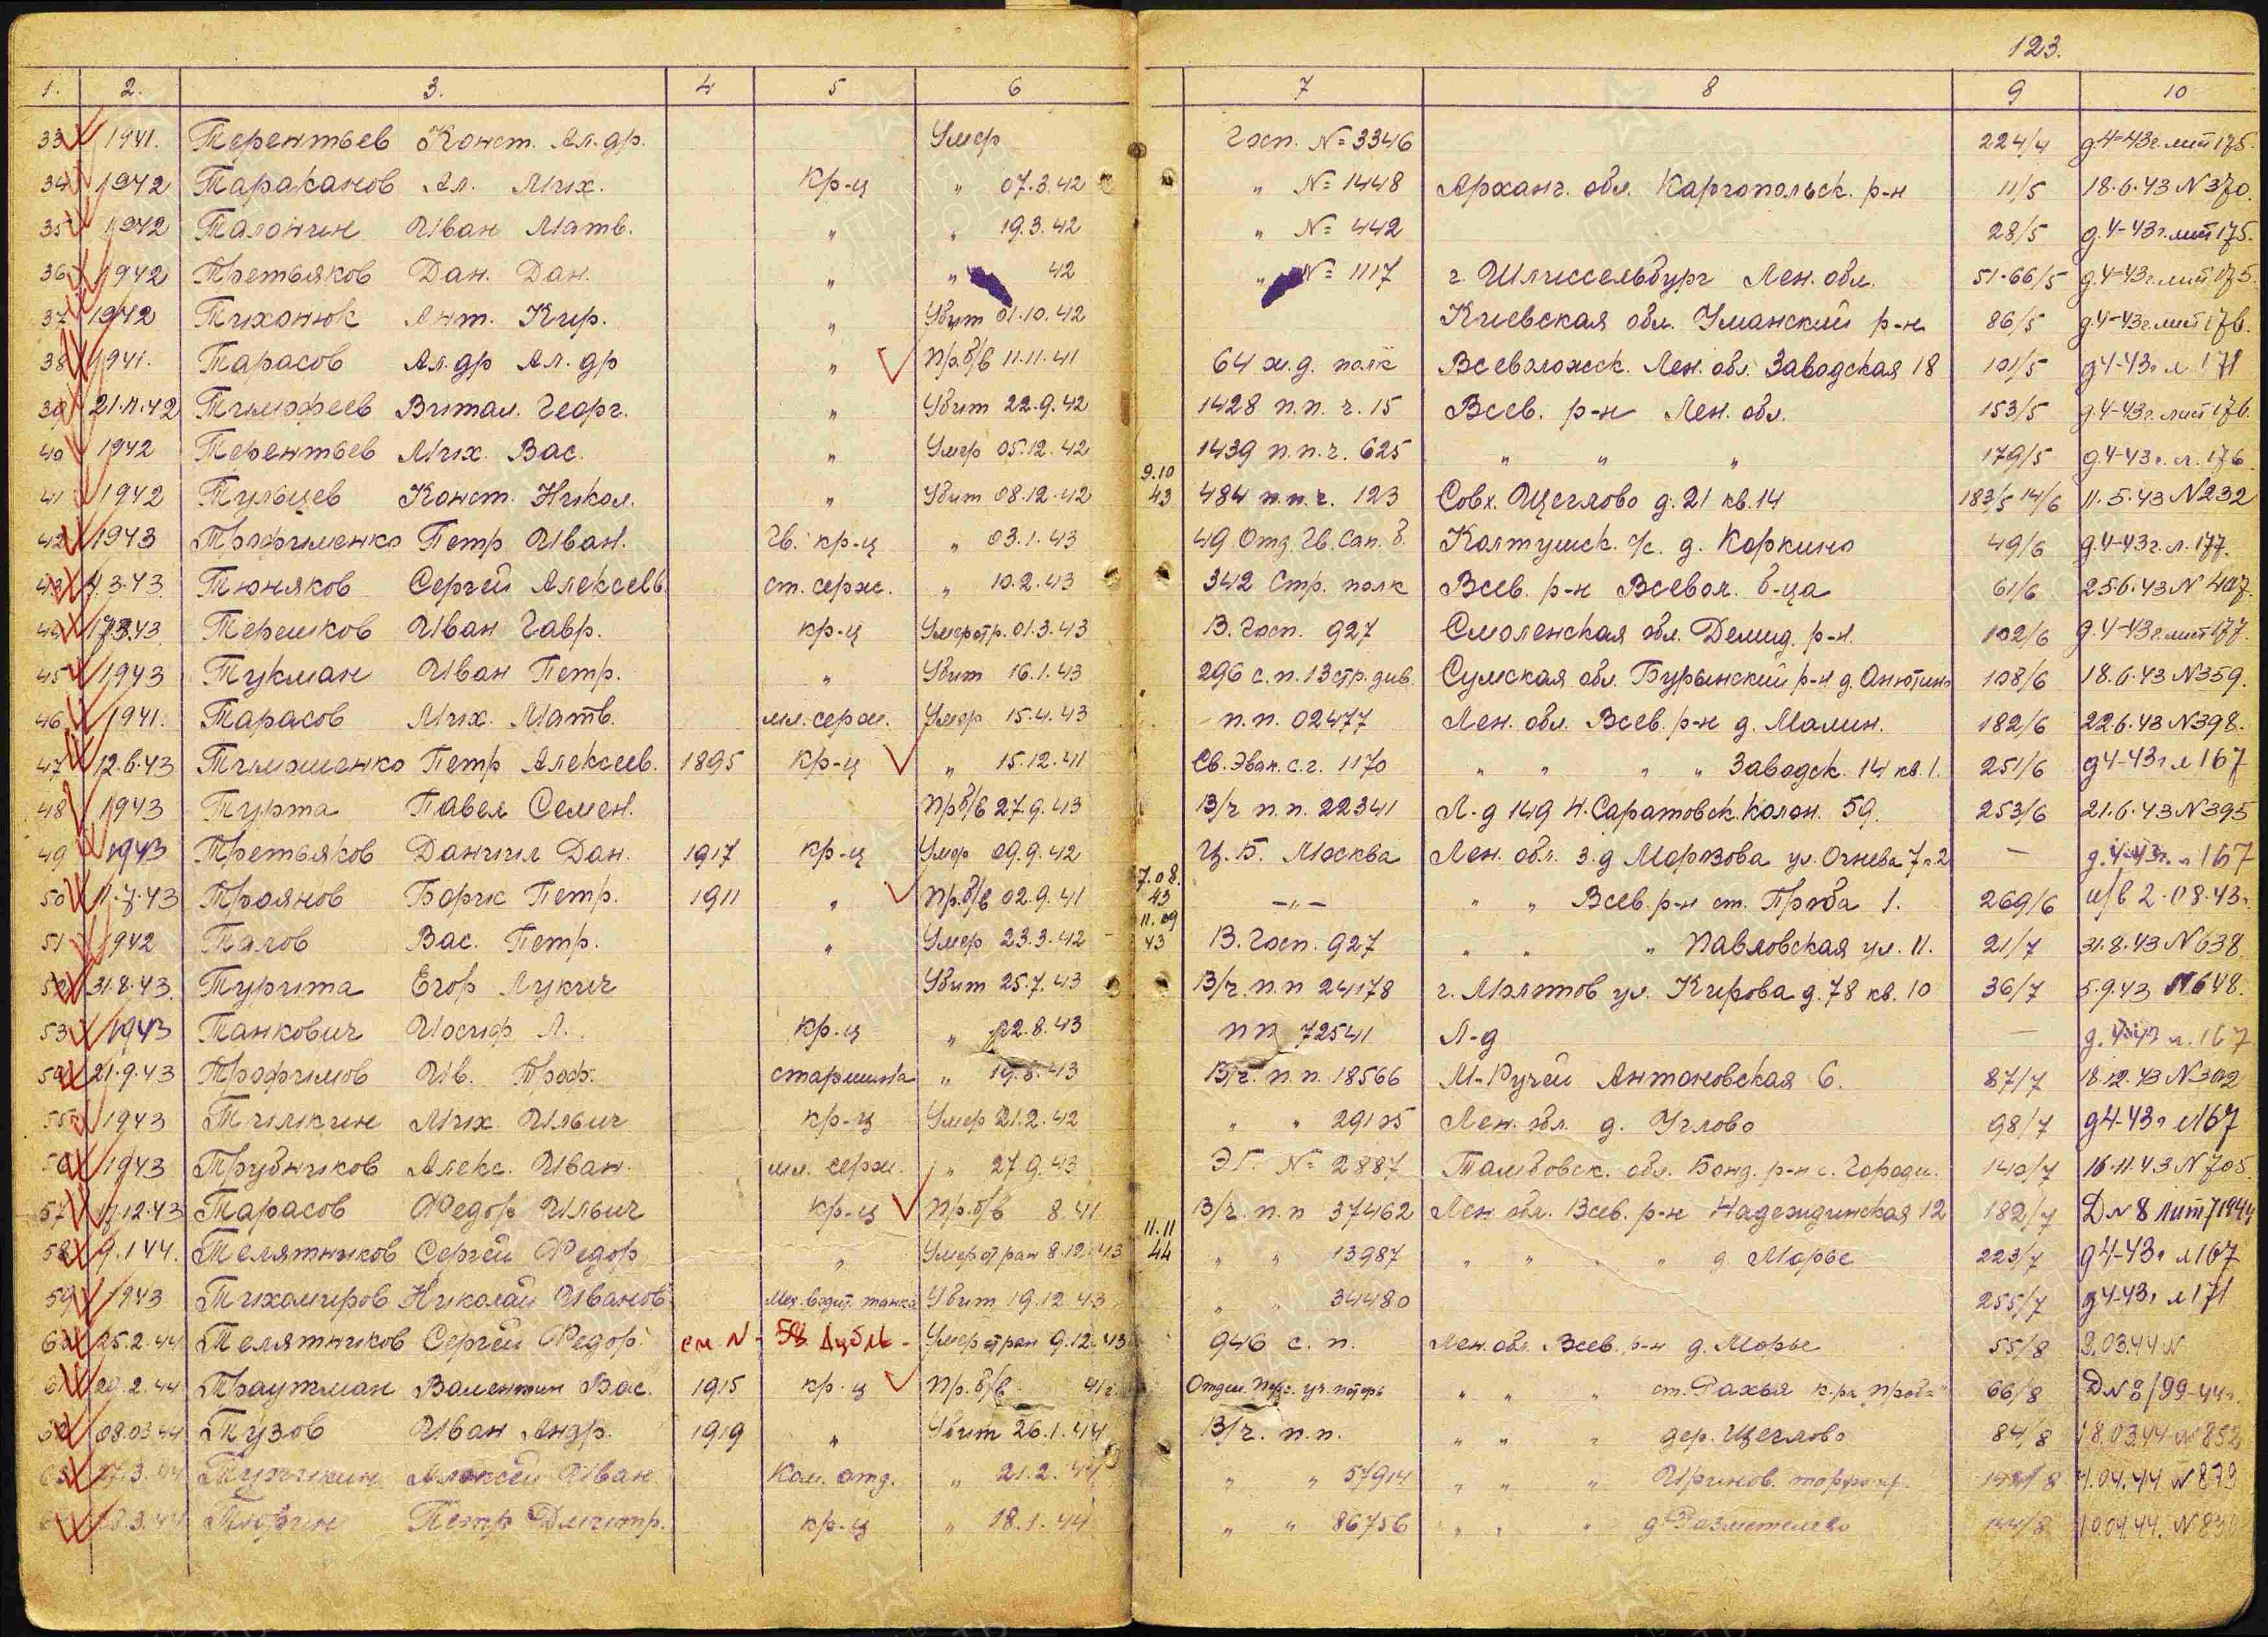 123.
1. 2. 3. 4 5 6 7 8 9 10
33 1941. Терентьев Конст. Ал.др. Умер Госп. №3346 224/4 д.4-43г. лист 175.
34 1942 Тараканов Ал. Мих. кр-ц " 07.3.42 " № 1448 Арханг. обл. Каргопольск. р-н 11/5 18.6.43 №370.
35 1942 Талонин Иван Матв. " " 19.3.42 " № 442 28/5 д.4-43г. лист 175.
36 1942 Третьяков Дан. Дан. " " 42 " № 1117 г. Шлиссельбург Лен. обл. 51-66/5 д.4-43г. лист 175.
37 1942 Тихонюк Ант. Кир. " Убит 01.10.42 Киевская обл. Уманский р-н 86/5 д.4-43г. лист 176.
38 1941. Тарасов Ал.др Ал.др " Пр.б/в 11.11.41 64 ж.д. полк Всеволожск. Лен. обл. Заводская 18 101/5 д4-43г л 171
39 21.11.42 Тимофеев Витал. Георг. " Убит 22.9.42 1428 п.п. ч. 15 Всев. р-н Лен. обл. 153/5 д.4-43г. лист 176.
40 1942 Терентьев Мих. Вас. " Умер 05.12.42 1439 п.п.ч. 625 " " " 179/5 д.4-43г. л. 176
41 1942 Тульцев Конст. Никол. " Убит 08.12.42 9.10 43 484 п.п.ч. 123 Совх. Щеглово д. 21 кв. 14 183/5 14/6 11.5.43 №232
42 1943 Трофименко Петр Иван. Гв. кр-ц " 03.1.43 49 Отд. Гв. Сап. б. Колтушск. с/с. д. Коркино 49/6 д.4-43г. л. 177.
43 4.3.43 Тюняков Сергей Алексеев. ст. серж. " 10.2.43 342 Стр. полк Всев. р-н Всевол. б-ца 61/6 25.6.43 № 407.
44 17.3.43 Терешков Иван Гавр. кр-ц Умер от р. 01.3.43 В. Госп. 927 Смоленская обл. Демид. р-н. 102/6 д.4-43г. лист 177.
45 1943 Тукман Иван Петр. " Убит 16.1.43 296 с.п. 13 стр. див. Сумская обл. Бурынский р-н д. Анютино 108/6 18.6.43 №359.
46 1941. Тарасов Мих. Матв. мл. серж. Умер 15.4.43 п.п. 02477 Лен. обл. Всев. р-н д. Малин. 182/6 22.6.43 №398.
47 12.6.43 Тимошенко Петр Алексеев. 1895 кр-ц " 15.12.41 Св. Эвак. с.г. 1170 " " " " Заводск. 14 кв. 1. 251/6 д4-43г л 167
48 1943 Турта Павел Семен. Пр б/в 27.9.43 В/ч п.п. 22341 Л-д 149 Н. Саратовск. Колон. 59. 253/6 21.6.43 №395
49 1943 Третьяков Даниил Дан. 1917 кр-ц Умер 09.9.42 Ц.Б. Москва Лен. обл. з.д Морозова ул. Огнева 7 к. 2 — д. 4-43г. л 167
50 11.7.43 Троянов Борис Петр. 1911 " Пр. б/в 02.9.41 7.08. 43 —"— " " Всев. р-н ст. Проба 1. 269/6 и/в 2.08.43г.
51 1942 Талов Вас. Петр. " Умер 23.3.42 11.09 43 В. Госп. 927 " " " Павловская ул. 11. 21/7 31.8.43 №638.
52 31.8.43. Турита Егор Лукич Убит 25.7.43 В/ч. п.п 24178 г. Молотов ул. Кирова д. 78 кв. 10 36/7 5.9.43 №648.
53 1943 Танкович Иосиф Л. кр-ц " 22.8.43 пп 72541 Л-д — д. 4-43 л. 167
54 21.9.43 Трофимов Ив. Троф. старшина " 19.8.43 В/ч. п.п. 18566 М-Ручей Антоновская 6. 87/7 18.12.43 №302
55 1943 Тиликин Мих. Ильич кр-ц Умер 21.2.42 " " 29105 Лен. обл. д. Углово 98/7 д4-43г л167
56 1943 Трубников Алекс. Иван. мл. серж. " 27.9.43 ЭГ. № 2887 Тамбовск. обл. Бонд. р-н с. Городи. 140/7 16.11.43 №705
57 12.43 Тарасов Федор Ильич кр-ц Пр. б/в 8.41 В/ч. п.п 37462 Лен. обл. Всев. р-н Надеждинская 12 182/7 Д№8 лит 7 1944
58 9.1 44. Телятников Сергей Федор. " Умер от ран 8.12.43 11.11 44 " " 13987 " " " " д. Морье 223/7 д4-43г л167
59 1943 Тихомиров Николай Иванов. Мех. водит. танка Убит 19.12.43 " " 34480 255/7 д4-43г л171
60 25.2.44 Телятников Сергей Федор. см. № - 58 Дубль - Умер от ран 9.12.43 946 с. п. Лен. обл. Всев. р-н д. Морье 55/8 9.03.44 №
61 29.2.44 Траутман Валентин Вас. 1915 кр-ц Пр. б/в. 41г. Отдел. Перс. уч. потерь " " " ст. Рахья 66/8 Д№8/99-44г.
62 08.03.44 Тузов Иван Андр. 1919 " Убит 26.1.44 В/ч. п.п. " " " дер. Щеглово 84/8 18.03.44 №852
63 17.3.44 Алексей Иван. Ком. отд. " 21.2.44 " " 57914 " " " Иринов. 1.04.44 №879
18.3.44 Тюрин Петр Дмитр. кр-ц " 18.1.44 " " 86756 " " " д. Разметелево 144/8 10.04.44. №